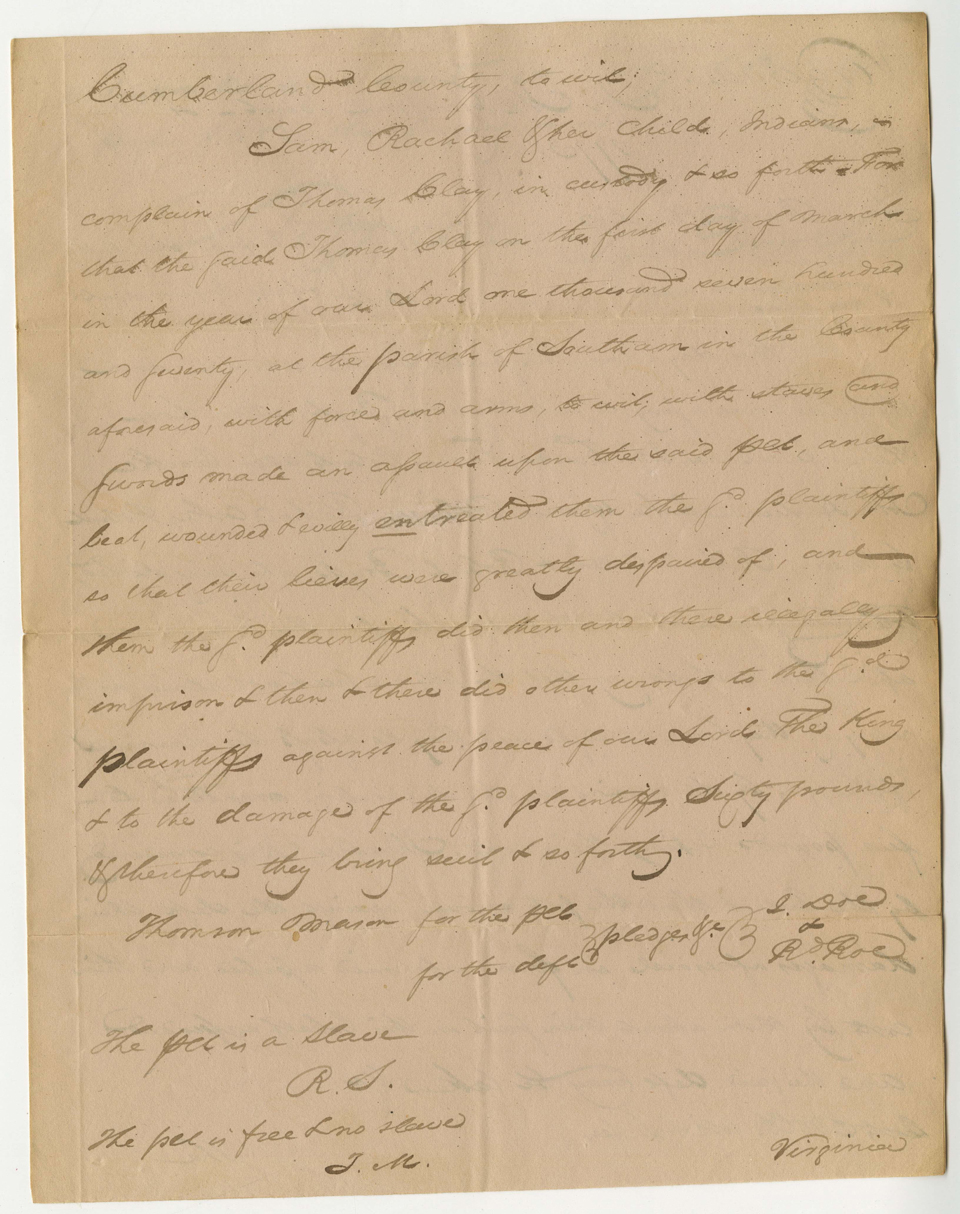 Cumberland County, to wit;
Sam, Rachael & her Child, Indians, -
complain of Thomas Clay, in custody & so forth - For
that the said Thomas Clay on the first day of March
in the year of our Lord one thousand seven hundred
and Swenty, at the parish of Southam in the County
aforesaid, with force and arms, to wit; with staves and
swords made an assault upon the said plt, and
beat, wounded & evilly entreated them the sd. plaintiffs
so that their lieves were greatly despaired of; and
them the sd. plaintiffs did then and there illegally
imprison & then & there did other wrongs to the sd.
plaintiffs against the peace of our Lord The King
& to the damage of the sd. plaintiffs Sixty pounds,
& therefore they bring suit & so forth.
Thomson Mason for the plt
for the deft
pledges &c
J. Doe
&
Rd. Roe
The plt is a slave
R. S.
The plt is free & no slave
T. M.
Virginia